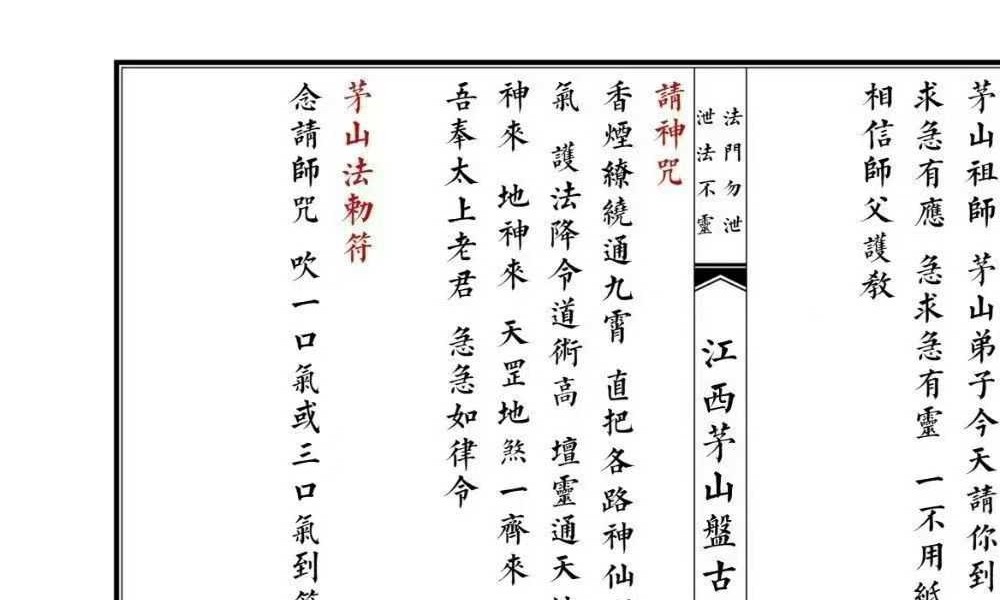 茅山祖師 茅山弟子今天請你到
求急有應 急求急有靈 一不用紙
相信師父護教
法門勿泄
泄法不靈
江西茅山盤古
請神咒
香煙繚繞通九霄 直把各路神仙
氣 護法降令道術高 壇靈通天
神來 地神來 天罡地煞一齊來
吾奉太上老君 急急如律令
茅山法勅符
念請師咒 吹一口氣或三口氣到符